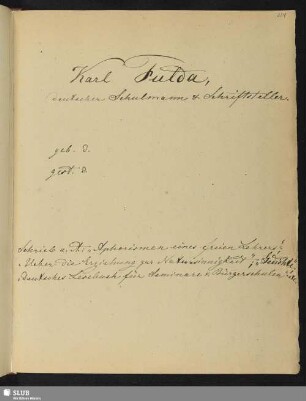 Karl Fulda,
deutscher Schulmann & Schriftsteller.
geb. d.
gest. d.
Schrieb u. A.: Aphorismen eines freien Lehrers;
Ueber die Erziehung zur Naturinnigkeit;
Deutsches Lesebuch für Seminare u. Bürgerschulen
SLUB